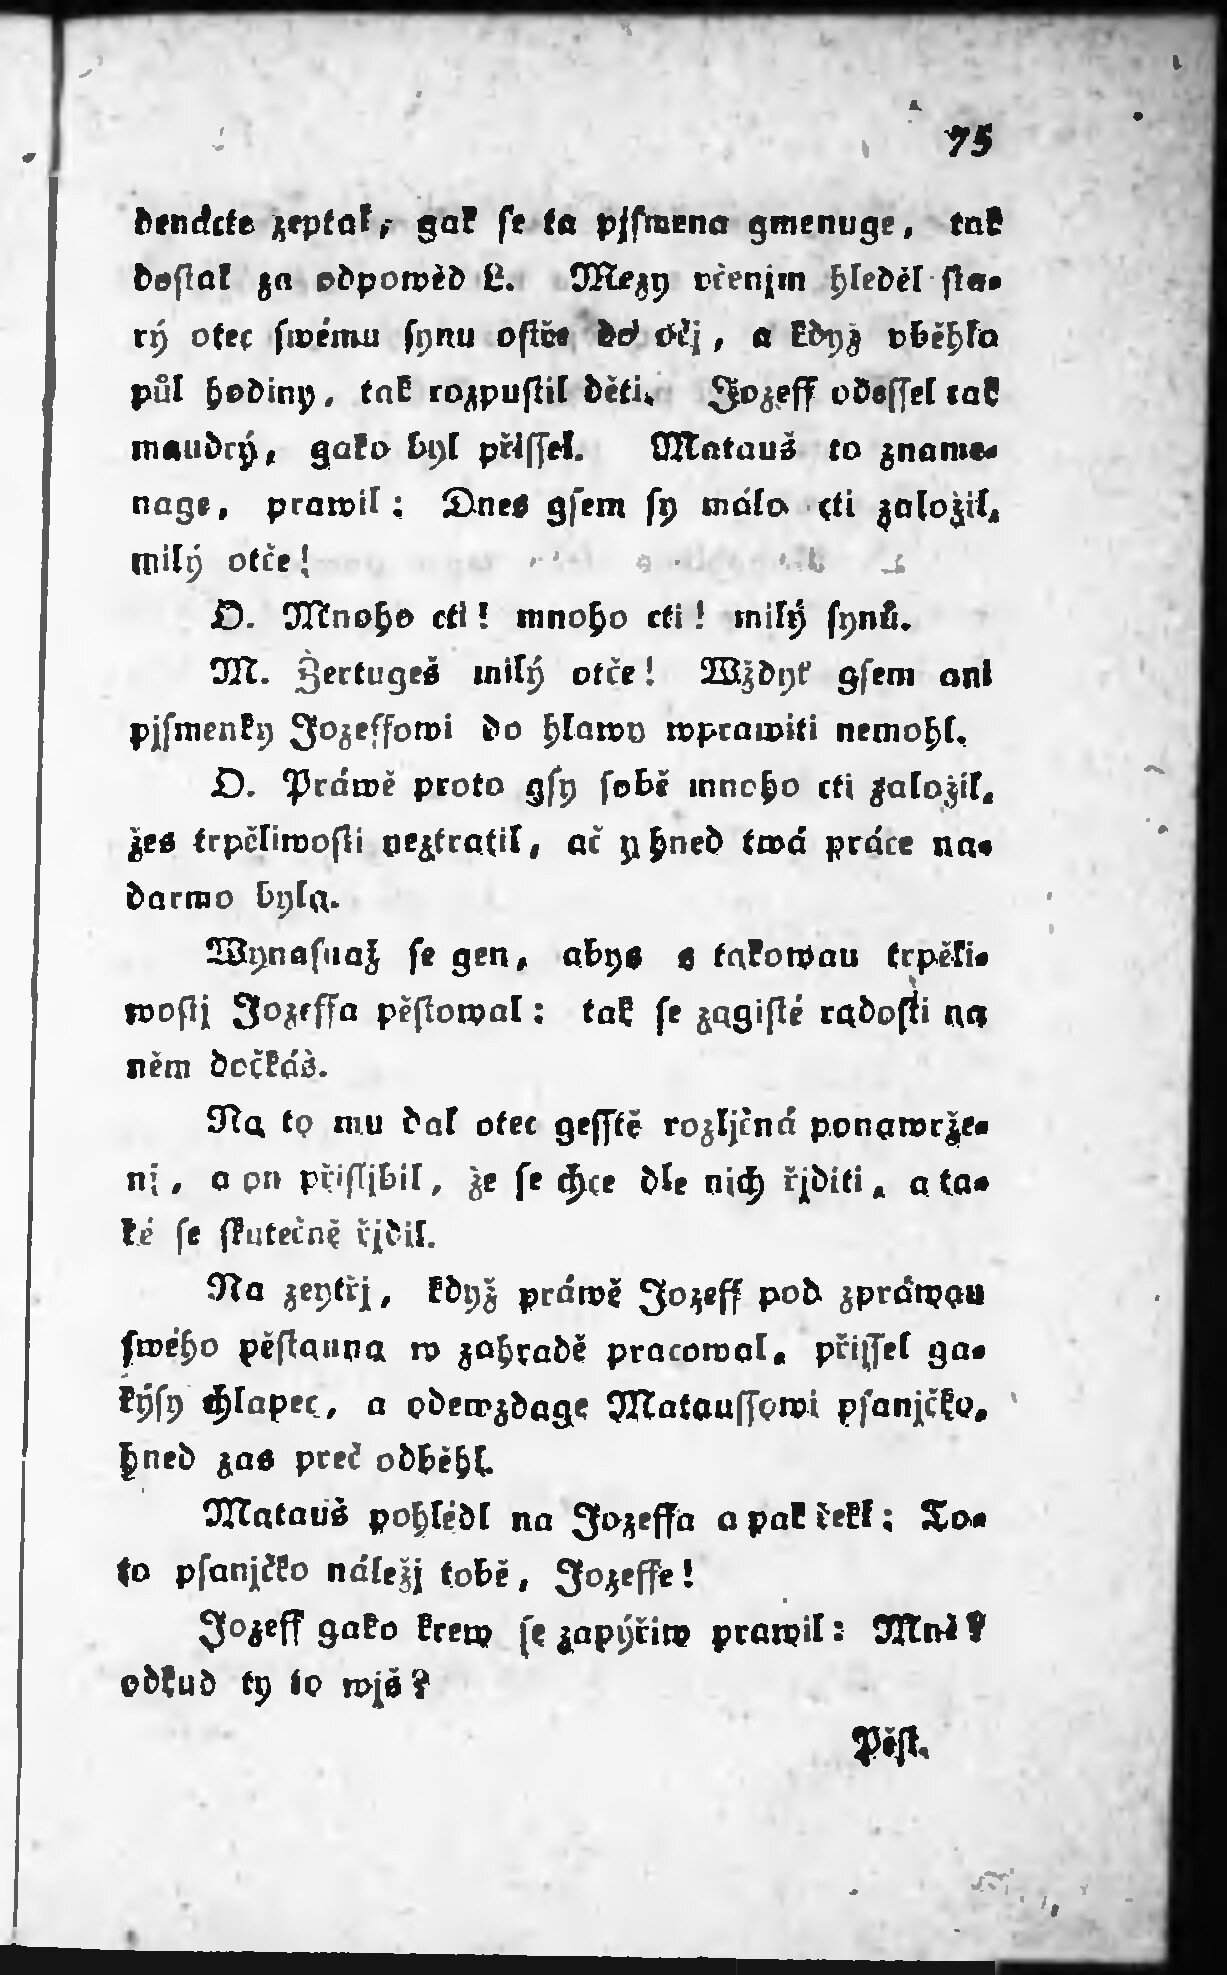 75
denácte zeptal, gak se ta pjsmena gmenuge, tak
dostal za odpowěd L. Mezy včenjm hleděl sta-
rý otec swému synu ostře do očj, a když vběhla
půl hodiny, tak rozpustil děti. Jozeff odessel tak
maudrý, gako byl přissel. Matauš to zname-
nage, prawil: Dnes gsem sy málo cti založil,
milý otče!
O. Mnoho cti! mnoho cti! milý synů.
M. Žertugeš milý otče! Wždyť gsem ani
pjsmenky Jozeffowi do hlawy wprawiti nemohl.
O. Práwě proto gsy sobě mnoho cti založil,
žes trpěliwosti neztratil, ač y hned twá práce na-
darmo byla.
Wynasnaž se gen, abys s takowau trpěli-
wostj Jozeffa pěstowal: tak se zagisté radosti na
něm dočkáš.
Na to mu dal otec gesstě rozljčná ponawrže-
nj, a on přisljbil, že se chce dle nich řjditi, a ta-
ké se skutečně řjdil.
Na zeytřj, když práwě Jozeff pod zpráwau
swého pěstauna w zahradě pracowal, přissel ga-
kýsy chlapec, a odewzdage Mataussowi psanjčko,
hned zas preč odběhl.
Matauš pohlédl na Jozeffa a pak řekl: To-
to psanjčko náležj tobě, Jozeffe!
Jozeff gako krew se zapýřiw prawil: Mně?
odkud ty to wjš?
Pěst.